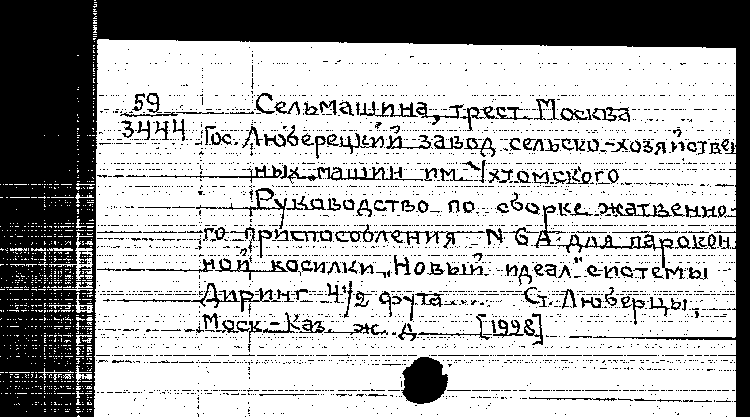 59
3444
Сельмашина, трест. Москва
Гос. Люберецкий завод сельско-хозяйствен
ных машин им. Ухтомского
Руководство по сборке жатвенно-
го приспособления N 6 А для парокон
ной косилки „Новый идеал" системы
Диринг 4 1/2 фута.... Ст. Люберцы,
Моск.-Каз. ж. д. [1928]